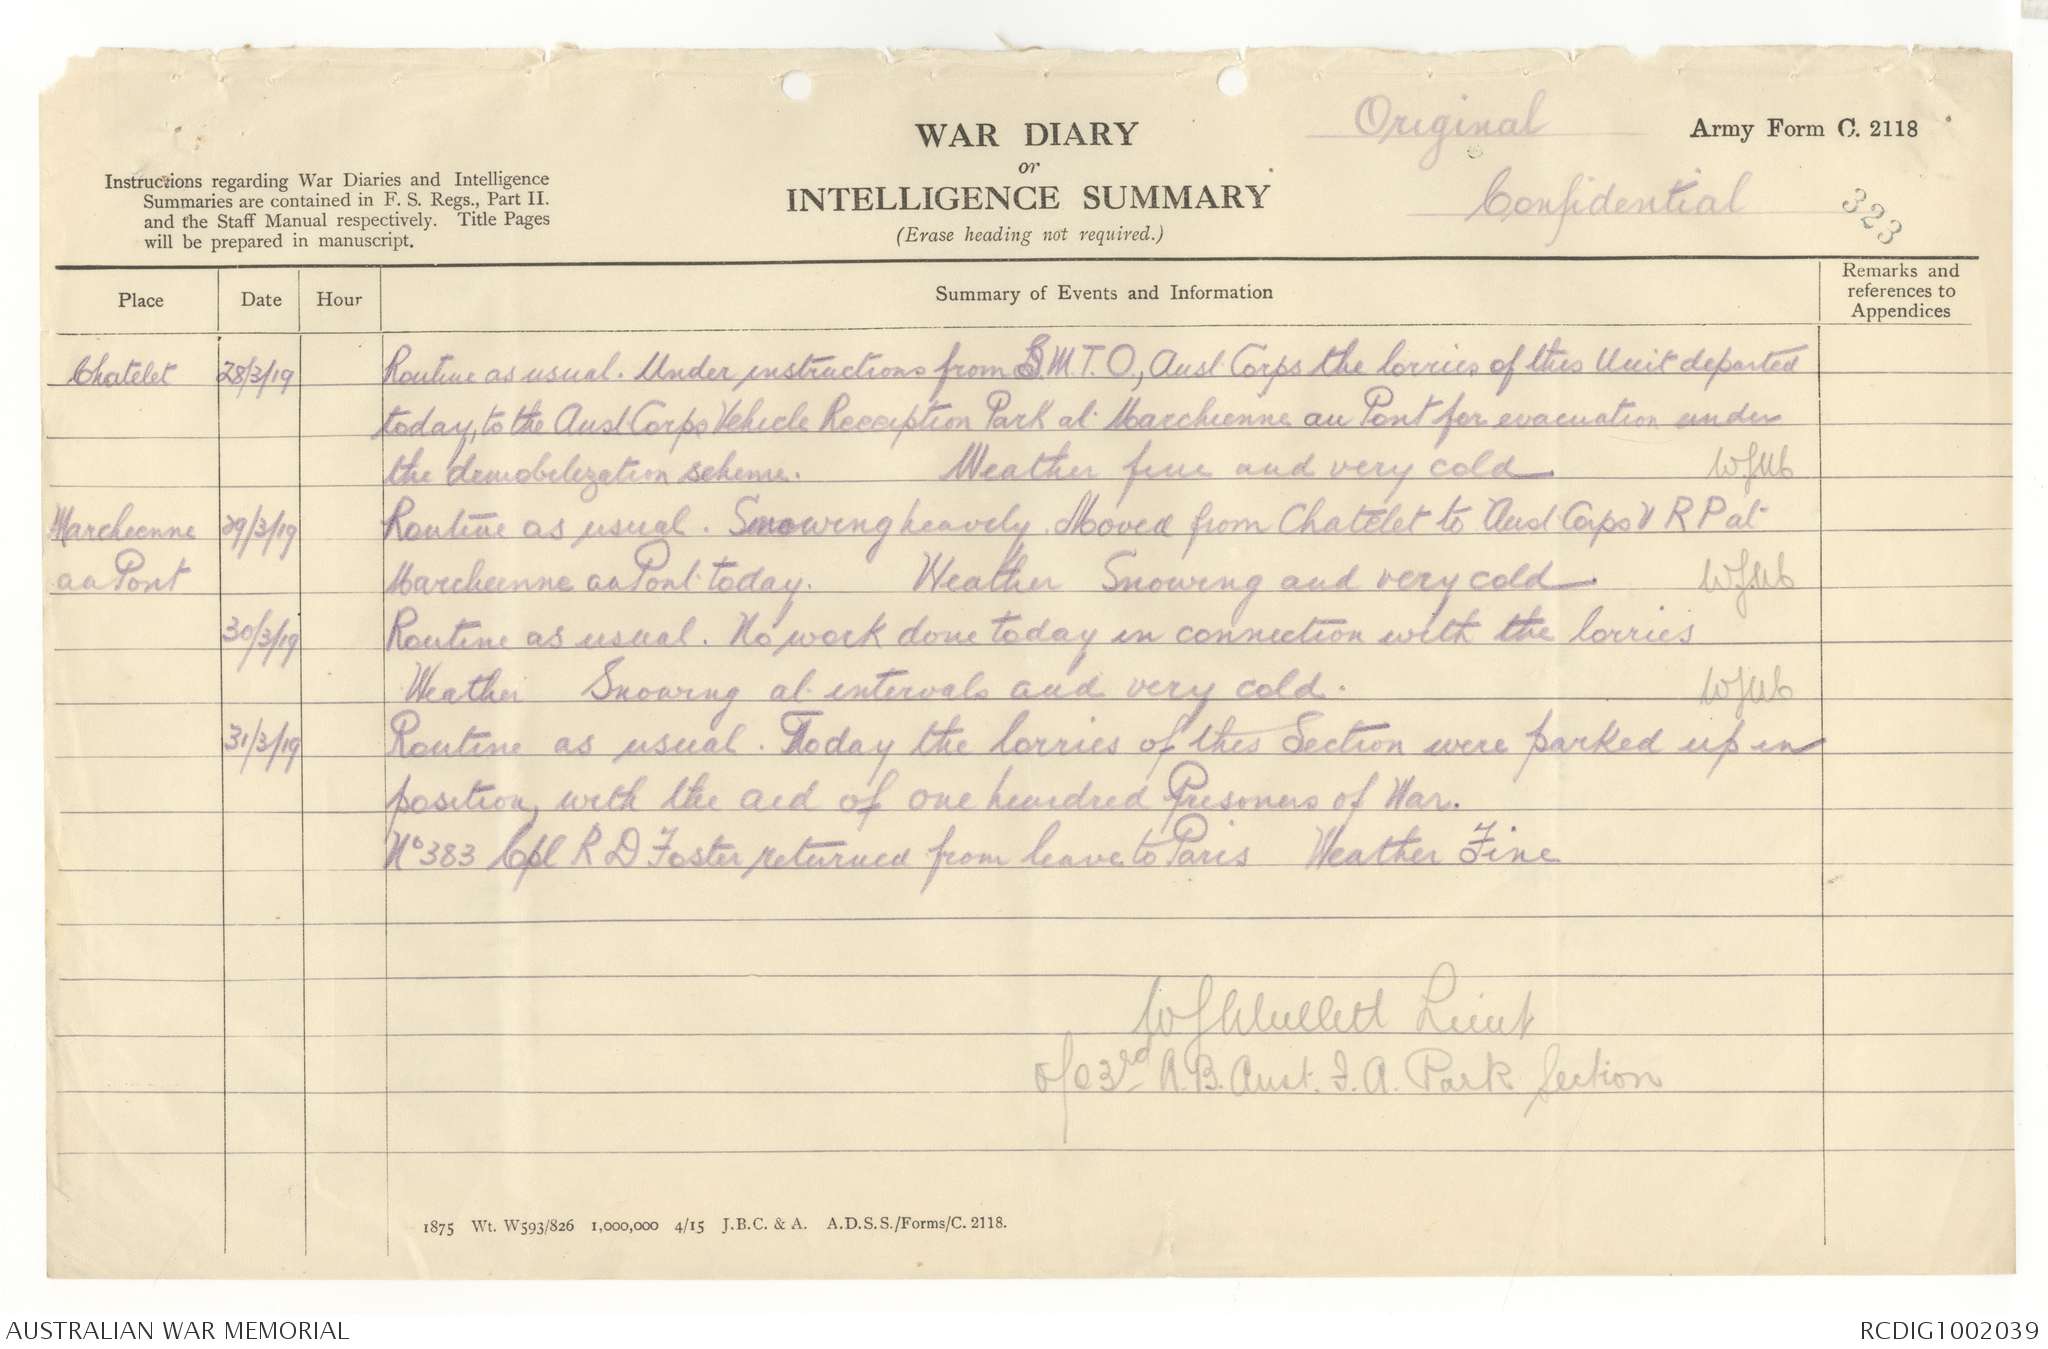 Original
WAR DIARY
Army Form C. 2118
or
Instructions regarding War Diaries and Intelligence
Summaries are contained in F. S. Regs., Part II.
and the Staff Manual respectively. Title Pages
will be prepared in manuscript.
INTELLIGENCE SUMMARY
Confidential
323
(Erase heading not required.)
Place Date Hour Summary of Events and Information Remarks and
references to
Appendices
Chatelet 28/3/19 Routine as usual. Under instructions from S.M.T.O., Aust Corps the lorries of this Unit departed
today, to the Aust Corps Vehicle Reception Park at Marchienne au Pont for evacuation under
the demobilization scheme. Weather fine and very cold
Marchienne 29/3/19 Routine as usual. Snowing heavily. Moved from Chatelet to Aust Corps V R P at
au Pont Marchienne au Pont today. Weather Snowing and very cold
30/3/19 Routine as usual. No work done today in connection with the lorries
Weather Snowing at intervals and very cold.
31/3/19 Routine as usual. Today the lorries of this Section were parked up in
position, with the aid of one hundred Prisoners of War.
No 383 Cpl R D Foster returned from leave to Paris Weather Fine
Lieut
o/c 3rd A.B. Aust. F. A. Park Section
1875 Wt. W593/826 1,000,000 4/15 J.B.C. & A. A.D.S.S./Forms/C. 2118.
AUSTRALIAN WAR MEMORIAL
RCDIG1002039